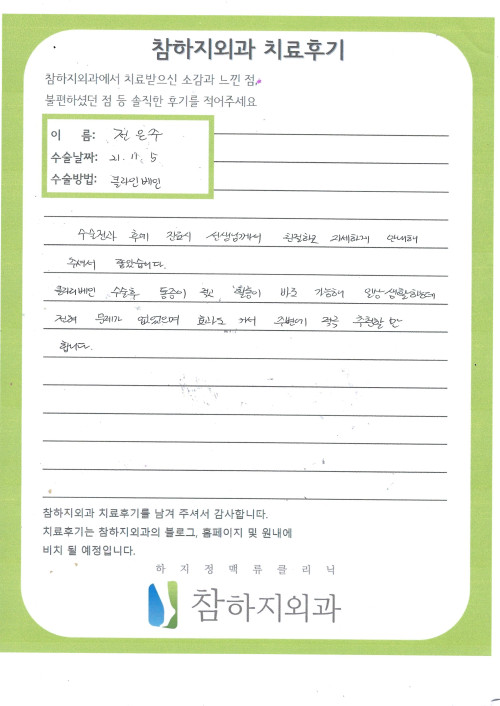 참하지외과 치료후기
참하지외과에서 치료받으신 소감과 느낀 점,
불편하셨던 점 등 솔직한 후기를 적어주세요
이 름: 전은주
수술날짜: 21. 11. 5
수술방법: 클라인베인
수술전과 후에 진료시 선생님께서 친절하고 자세하게 안내해
주셔서 좋았습니다.
클라리베인 수술후 통증이 없고 활동이 바로 가능해 일상생활하는데
전혀 문제가 없었으며 효과도 커서 주변에 적극 추천할 만
합니다.
참하지외과 치료후기를 남겨 주셔서 감사합니다.
치료후기는 참하지외과의 블로그, 홈페이지 및 원내에
비치 될 예정입니다.
하지정맥류클리닉
참하지외과